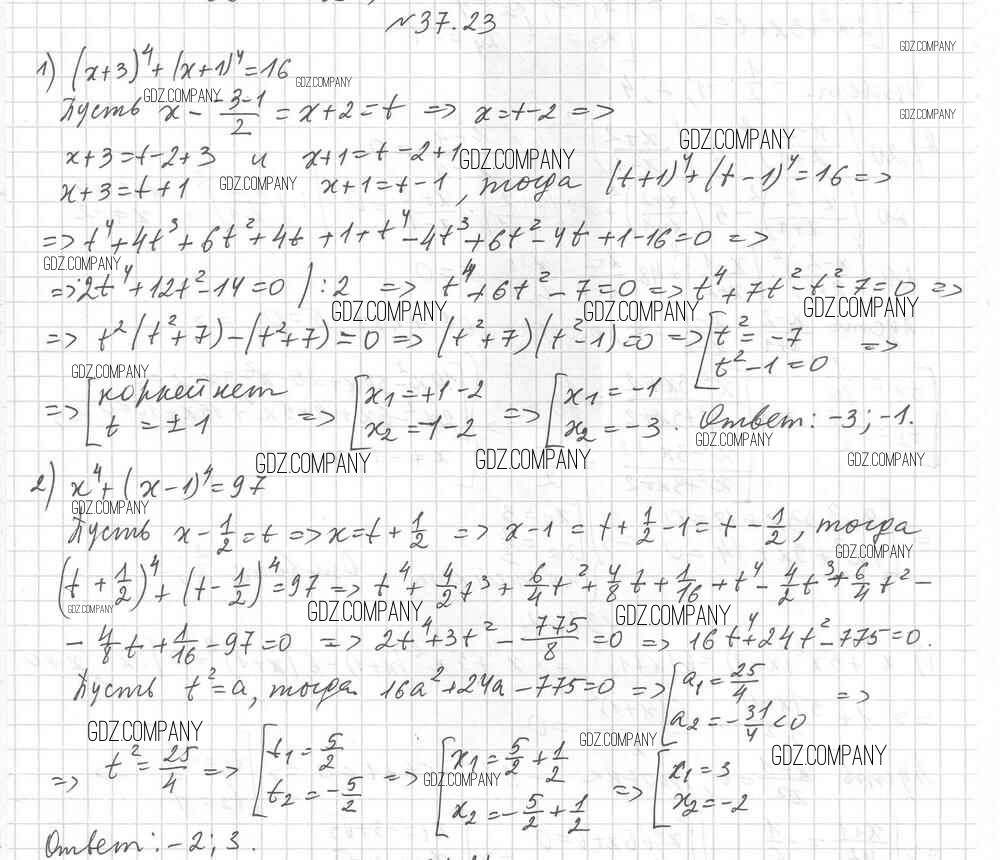 №37.23
1) (x+3)⁴+(x+1)⁴=16
GDZ.COMPANY
GDZ.COMPANY
GDZ.COMPANY
Пусть x - (-3-1)/2 = x+2=t => x=t-2 =>
GDZ.COMPANY
x+3=t-2+3 и x+1=t-2+1
GDZ.COMPANY
GDZ.COMPANY
x+3=t+1 x+1=t-1, тогда (t+1)⁴+(t-1)⁴=16 =>
GDZ.COMPANY
=> t⁴+4t³+6t²+4t+1+t⁴-4t³+6t²-4t+1-16=0 =>
GDZ.COMPANY
=> 2t⁴+12t²-14=0 |:2 => t⁴+6t²-7=0 => t⁴+7t²-t²-7=0 =>
GDZ.COMPANY GDZ.COMPANY GDZ.COMPANY
=> t²(t²+7)-(t²+7)=0 => (t²+7)(t²-1)=0 => [t²=-7
t²-1=0 =>
GDZ.COMPANY
=> [корней нет
t=±1 => [x₁=+1-2
x₂=-1-2 => [x₁=-1
x₂=-3. Ответ: -3; -1.
GDZ.COMPANY
GDZ.COMPANY GDZ.COMPANY GDZ.COMPANY
2) x⁴+(x-1)⁴=97
GDZ.COMPANY
Пусть x-1/2=t => x=t+1/2 => x-1=t+1/2-1=t-1/2, тогда
GDZ.COMPANY
(t+1/2)⁴+(t-1/2)⁴=97 => t⁴+4/2t³+6/4t²+4/8t+1/16+t⁴-4/2t³+6/4t²-
GDZ.COMPANY GDZ.COMPANY GDZ.COMPANY
-4/8t+1/16-97=0 => 2t⁴+3t²-775/8=0 => 16t⁴+24t²-775=0.
Пусть t²=a, тогда 16a²+24a-775=0 => [a₁=25/4
a₂=-31/4<0 =>
GDZ.COMPANY GDZ.COMPANY GDZ.COMPANY
=> t²=25/4 => [t₁=5/2
t₂=-5/2 => [x₁=5/2+1/2
x₂=-5/2+1/2 => [x₁=3
x₂=-2
GDZ.COMPANY
Ответ: -2; 3.